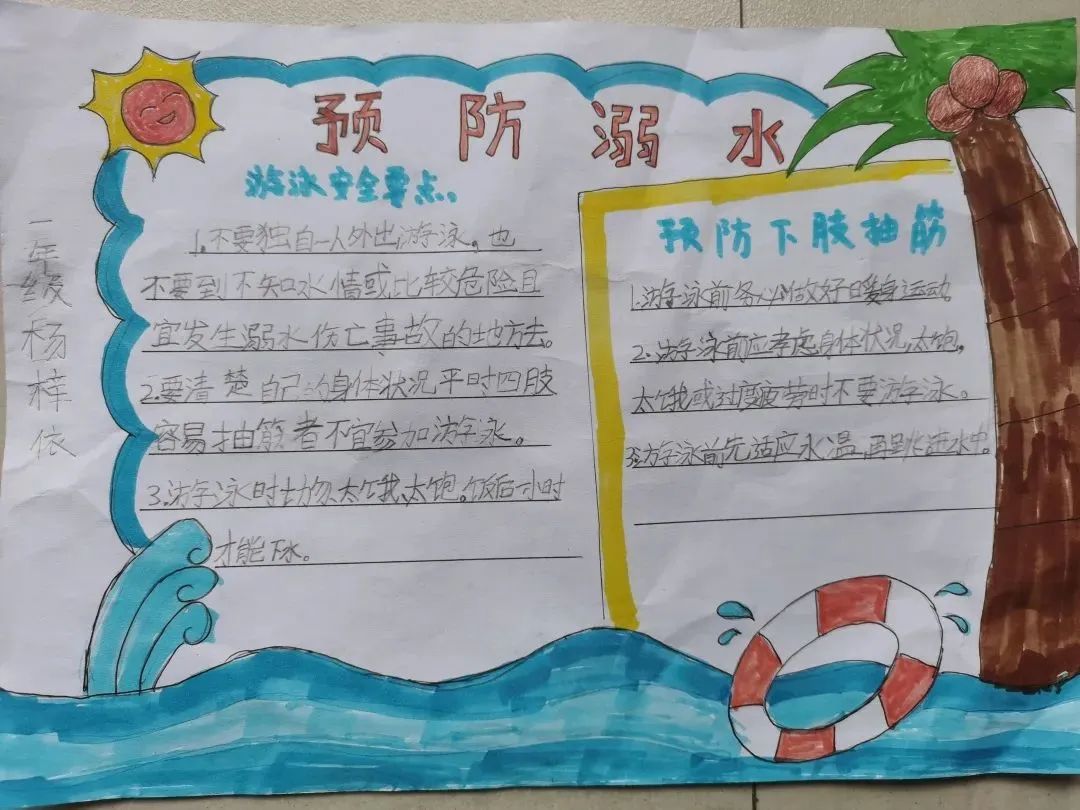 预防溺水
一年级杨梓依
游泳安全要点。
1.不要独自一人外出游泳。也
不要到不知水情或比较危险且
宜发生溺水伤亡事故的地方去。
2.要清楚自己的身体状况平时四肢
容易抽筋者不宜参加游泳。
3.游泳时切勿太饿、太饱。饭后一小时
才能下水。
预防下肢抽筋
1.游泳前务必做好暖身运动。
2.游泳前应考虑身体状况,太饱,
太饿或过度疲劳时不要游泳。
3.游泳前先适应水温,再跳进水中。